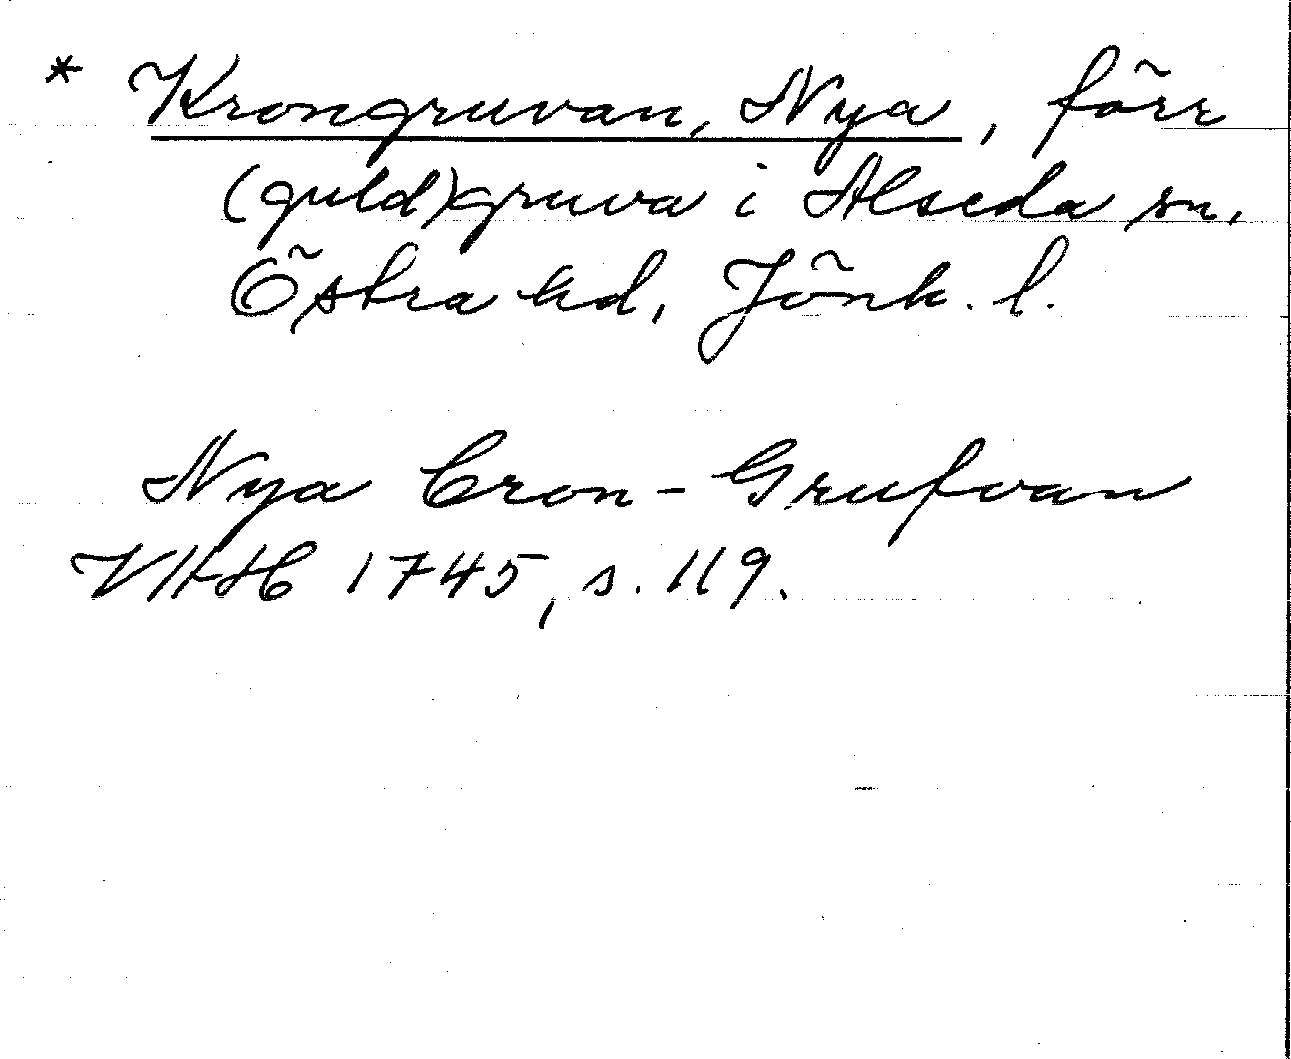 * Krongruvan, Nya, förr
(guld)gruva i Alseda sn,
Östra hd, Jönk. l.
Nya Cron-Grufvan
VHAH 1745, s. 119.